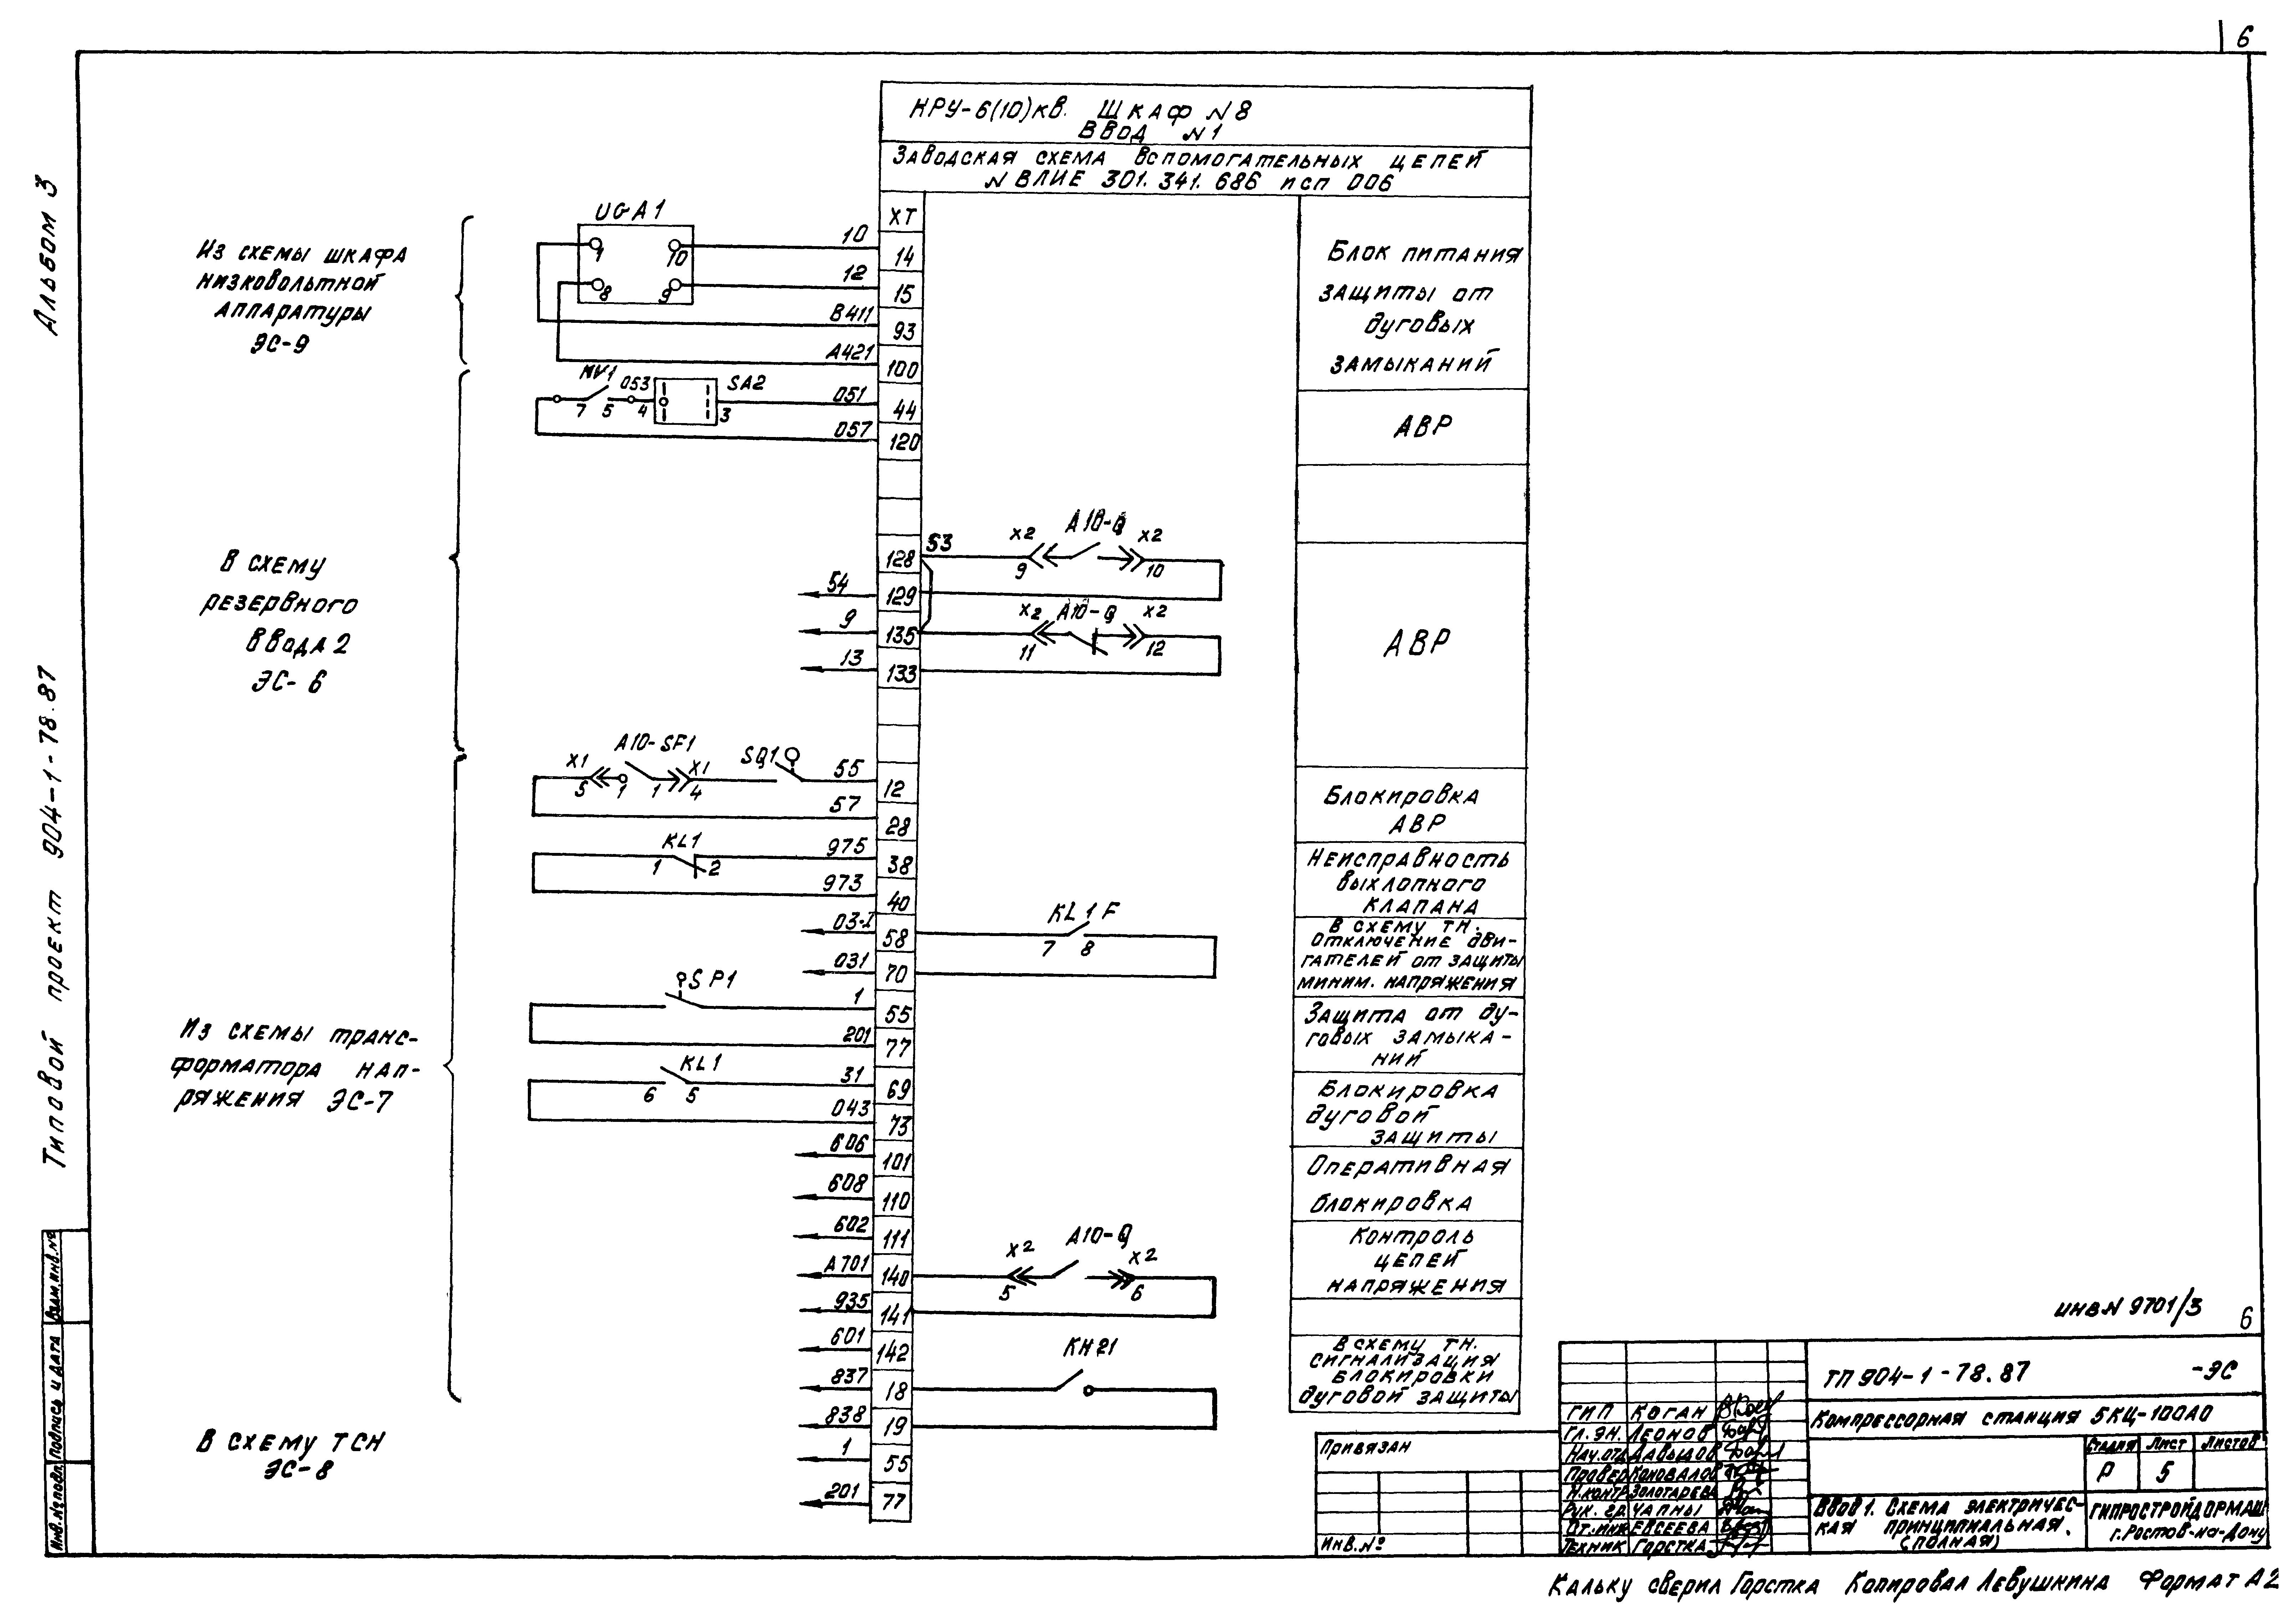 6
Альбом 3
Типовой проект 904-1-78.87
КРУ-6(10)кв. Шкаф N8
Ввод N1
Заводская схема вспомогательных цепей
N ВЛИЕ 301.341.686 исп 006
XT
Из схемы шкафа
низковольтной
аппаратуры
ЭС-9
UGA1
1
10
8
9
10
14
12
15
В411
93
А421
100
Блок питания
защиты от
дуговых
замыканий
KV1
053
SA2
7
5
4
3
051
44
057
120
АВР
В схему
резервного
ввода 2
ЭС-6
128
53
X2
A10-Q
X2
9
10
54
129
9
135
X2
A10-Q
X2
11
12
13
133
АВР
A10-SF1
X1
X1
SQ1
5
1
1
4
55
12
57
28
Блокировка
АВР
KL1
1
2
975
38
973
40
Неисправность
выхлопного
клапана
03-I
58
KL1F
7
8
031
70
В схему ТН.
Отключение дви-
гателей от защиты
миним. напряжения
Из схемы транс-
форматора нап-
ряжения ЭС-7
SP1
1
55
201
77
Защита от ду-
говых замыка-
ний
KL1
6
5
31
69
043
73
Блокировка
дуговой
защиты
606
101
608
110
Оперативная
блокировка
602
111
A701
140
X2
A10-Q
X2
5
6
935
141
Контроль
цепей
напряжения
601
142
837
18
KH21
838
19
В схему ТН.
сигнализация
блокировки
дуговой защиты
В схему ТСН
ЭС-8
1
55
201
77
инв N 9701/3
6
ТП 904-1-78.87 -ЭС
Компрессорная станция 5КЦ-100А0
Стадия Лист Листов
Р 5
Ввод 1. Схема электричес-
кая принципиальная.
(полная)
ГИПРОСТРОЙДОРМАШ
г.Ростов-на-Дону
ГИП Коган
Гл.эн. Леонов
Нач.отд Давыдов
Провер Коновалов
Н.контр Золотарева
Рук. гр. Чапны
Ст.инж Евсеева
Техник Горстка
Привязан
Инв.№
Взам.инв.№
Подпись и дата
Инв.№подл.
Кальку сверил Горстка Копировал Левушкина Формат А2